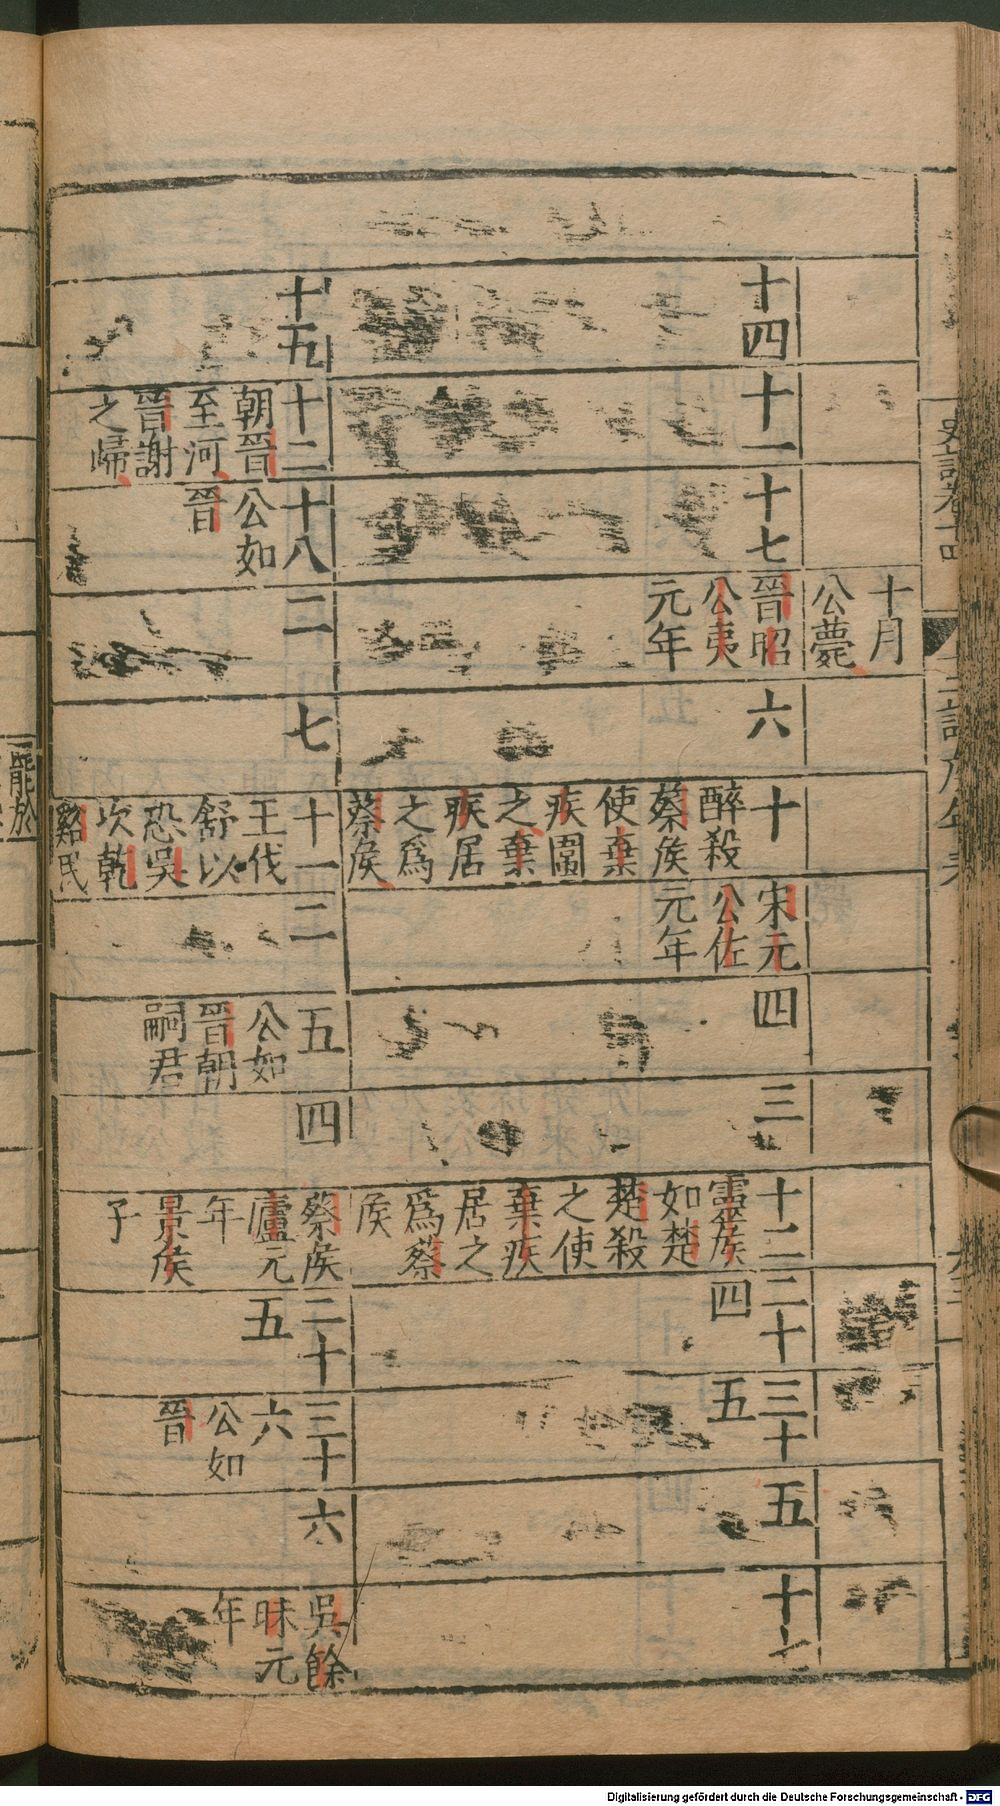 史記卷十四
十二諸侯年表
十月
公薨
十四
十一
十七
晉昭
公夷
元年
六
十
醉殺
蔡侯
使棄
疾圍
之棄
疾居
之爲
蔡侯
宋元
公佐
元年
四
三
十二
靈侯
如楚
楚殺
之使
棄疾
居之
爲蔡
侯
二十
四
三十
五
五
十七
十五
十二
朝晉
至河
晉謝
之歸
十八
公如
晉
二
七
十一
王伐
舒以
恐吳
次乾
谿民
二
五
公如
晉朝
嗣君
四
蔡侯
廬元
年
景侯
子
二十
五
三十
六
公如
晉
六
吳餘
昧元
年
罷於
Digitalisierung gefördert durch die Deutsche Forschungsgemeinschaft - DFG